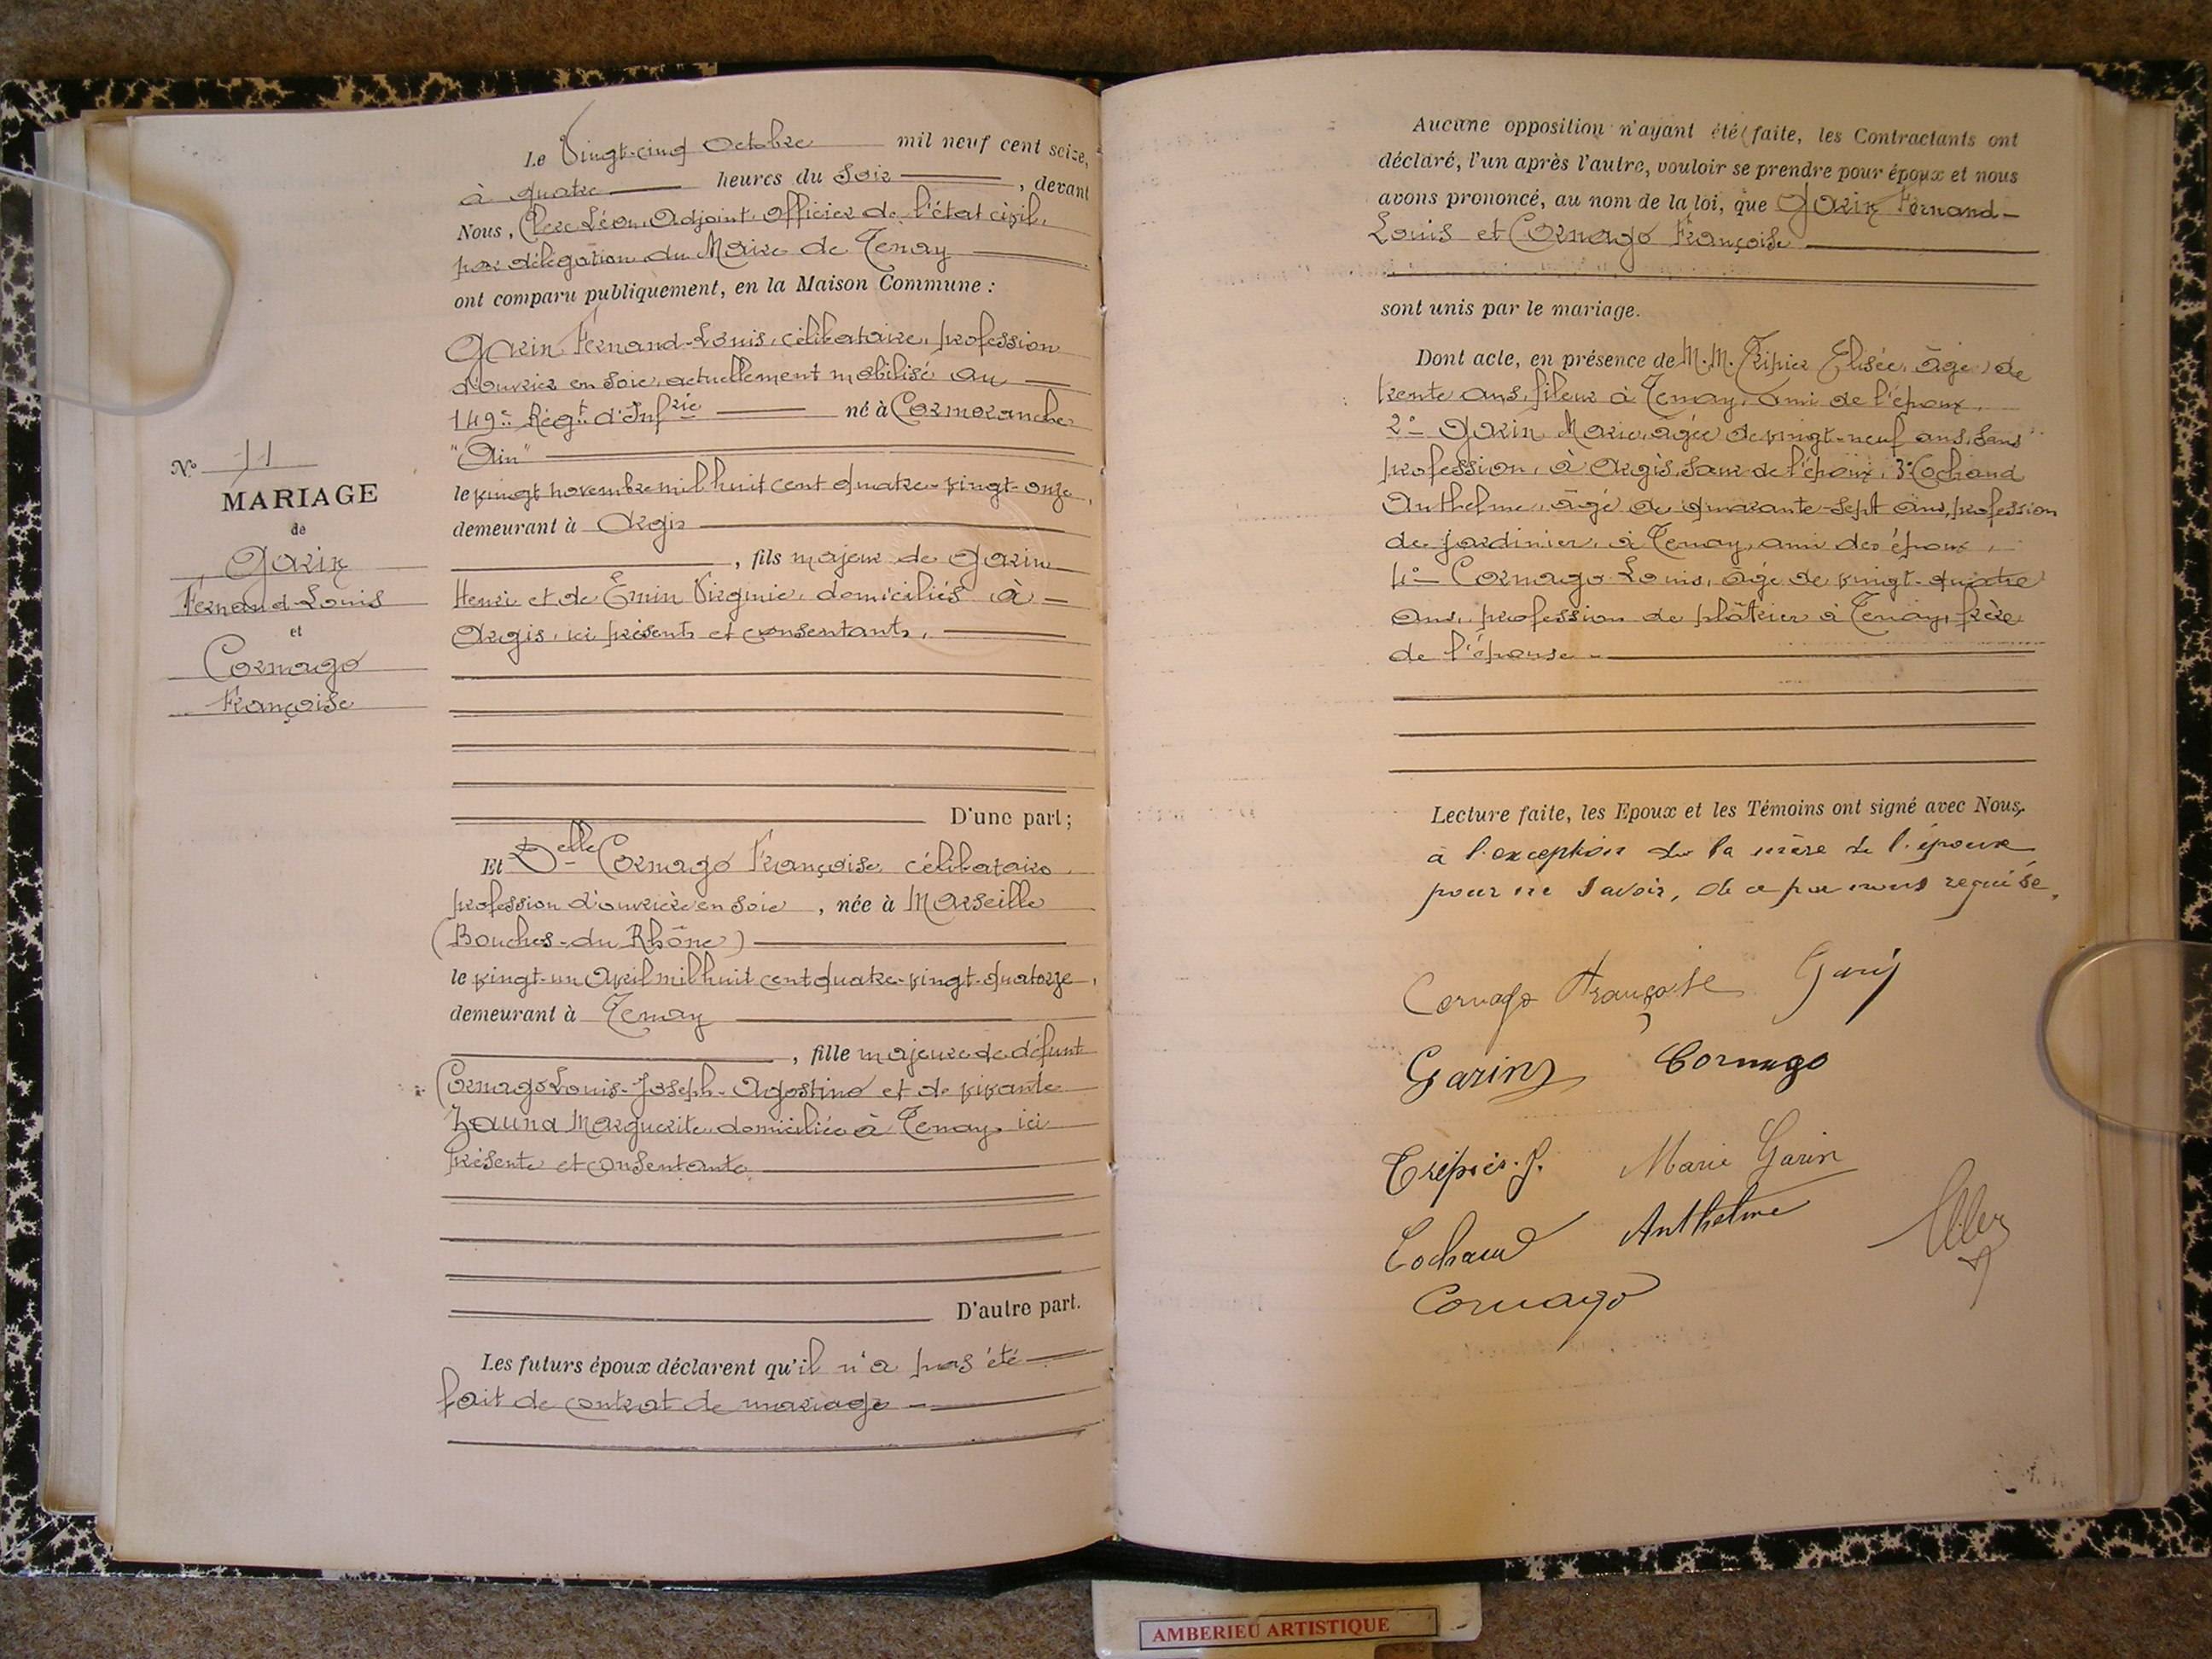 Le Vingt-cinq Octobre mil neuf cent seize,
à quatre heures du Soir, devant
Nous, Clerc Léon, Adjoint, Officier de l'état civil,
par délégation du Maire de Tenay
ont comparu publiquement, en la Maison Commune :
Garin Fernand-Louis, célibataire, profession
d'ouvrier en soie, actuellement mobilisé au
149e Régt d'Infrie né à Cormoranche
"Ain"
le vingt novembre mil huit cent quatre-vingt-onze,
demeurant à Argis
, fils majeur de Garin
Henri et de Emin Virginie, domiciliés à
Argis, ici présents et consentants,
D'une part;
Nº 11
MARIAGE
de
Garin
Fernand-Louis
et
Cornago
Françoise
Et Delle Cornago Françoise, célibataire
profession d'ouvrière en soie, née à Marseille
(Bouches-du Rhône)
le vingt-un Avril mil huit cent quatre-vingt-quatorze,
demeurant à Tenay
, fille majeure de défunt
Cornago Louis-Joseph-Agostino et de vivante
Zauna Marguerite domiciliée à Tenay ici
présente et consentante
D'autre part.
Les futurs époux déclarent qu'il n'a pas été
fait de contrat de mariage
Aucune opposition n'ayant été faite, les Contractants ont
déclaré, l'un après l'autre, vouloir se prendre pour époux et nous
avons prononcé, au nom de la loi, que Garin Fernand-
Louis et Cornago Françoise
sont unis par le mariage.
Dont acte, en présence de M.M. Tripier Elisée, âgé de
trente ans, fileur à Tenay, ami de l'époux,
2º Garin Marie, âgée de vingt-neuf ans, sans
profession, à Argis, sœur de l'époux, 3º Cochand
Anthelme, âgé de quarante-sept ans, profession
de jardinier, à Tenay, ami des époux,
4º Cornago Louis, âgé de vingt-quatre
ans, profession de plâtrier à Tenay, frère
de l'épouse
Lecture faite, les Epoux et les Témoins ont signé avec Nous,
à l'exception de la mère de l'épouse
pour ne savoir, de ce par nous requise.
Cornago Françoise Garin
Garin Cornago
Trépier. J. Marie Garin
Cochand Anthelme
Cornago
AMBERIEU ARTISTIQUE